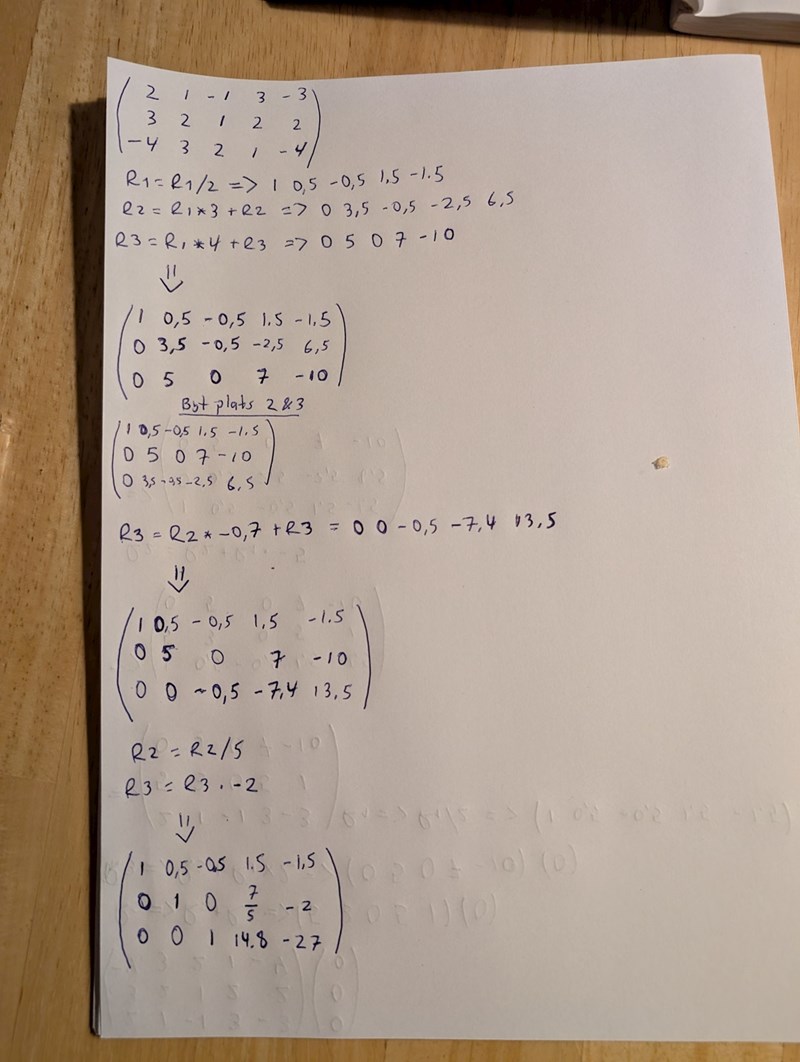 2 1 -1 3 -3
3 2 1 2 2
-4 3 2 1 -4
R1 = R1/2 => 1 0,5 -0,5 1,5 -1.5
R2 = R1*3 + R2 => 0 3,5 -0,5 -2,5 6,5
R3 = R1*4 + R3 => 0 5 0 7 -10
⇓
1 0,5 -0,5 1.5 -1,5
0 3,5 -0,5 -2,5 6,5
0 5 0 7 -10
Byt plats 2&3
1 0,5 -0,5 1.5 -1.5
0 5 0 7 -10
0 3,5 -0,5 -2,5 6,5
R3 = R2 * -0,7 + R3 = 0 0 -0,5 -7,4 13,5
⇓
1 0,5 -0,5 1,5 -1.5
0 5 0 7 -10
0 0 -0,5 -7,4 13,5
R2 = R2/5
R3 = R3 · -2
⇓
1 0,5 -0,5 1.5 -1,5
0 1 0 7/5 -2
0 0 1 14.8 -27